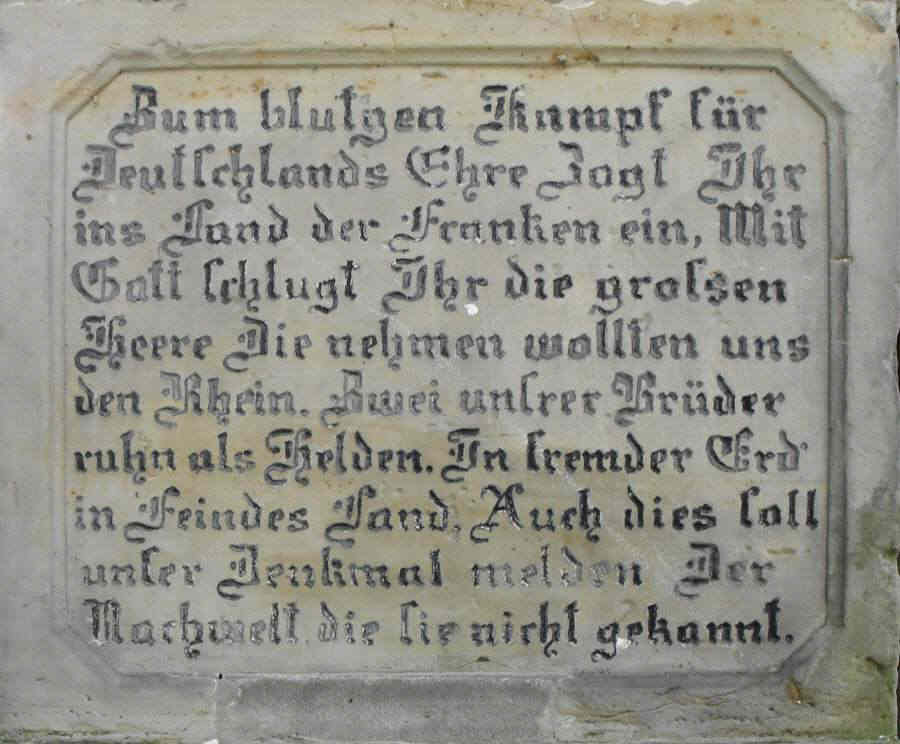 Zum blutgen Kampf für
Deutschlands Ehre Zogt Ihr
ins Land der Franken ein, Mit
Gott schlugt Ihr die grossen
Heere Die nehmen wollten uns
den Rhein. Zwei unsrer Brüder
ruhn als Helden. In fremder Erd'
in Feindes Land. Auch dies soll
unser Denkmal melden Der
Nachwelt die sie nicht gekannt.